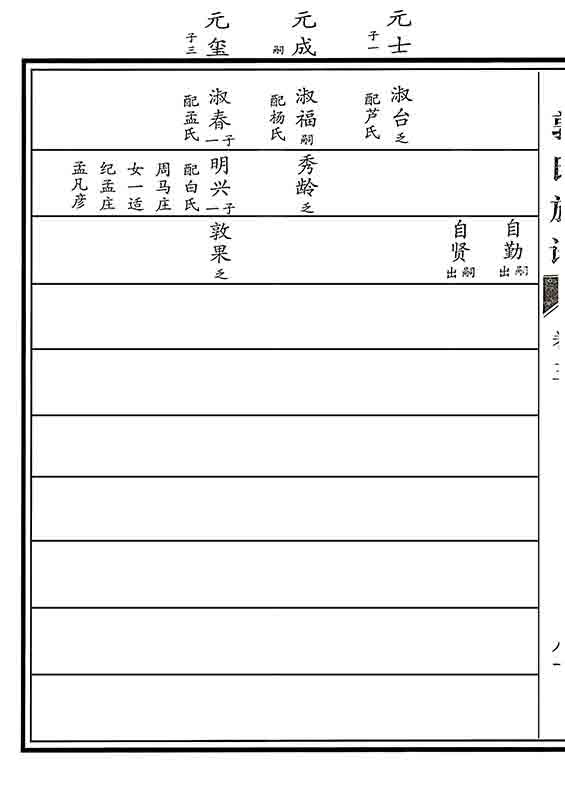 元士
子一
元成
嗣
元玺
子三
淑台乏
配芦氏
淑福嗣
配杨氏
淑春子一
配孟氏
秀龄乏
明兴子一
配白氏
周马庄
女一适
纪孟庄
孟凡彦
自勤嗣出
自贤嗣出
敦果乏